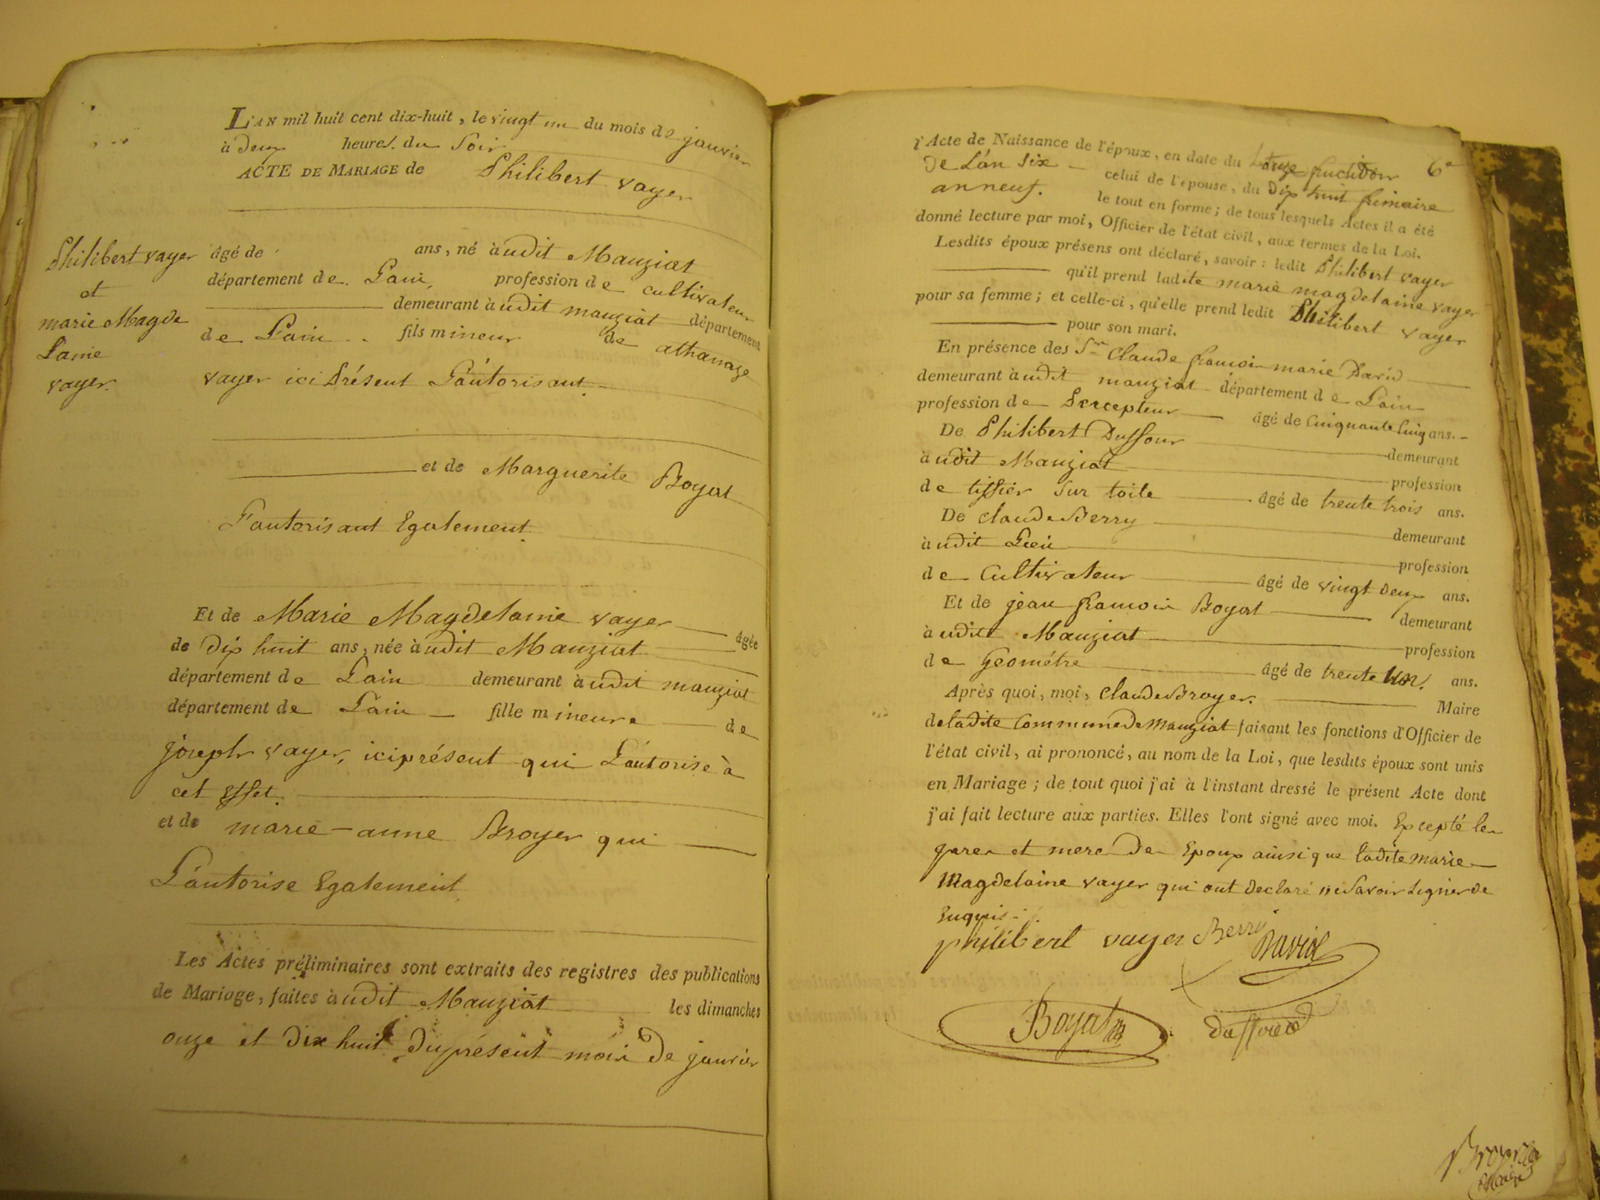 L'AN mil huit cent dix-huit, le vingt un du mois de janvier
à deux heures du Soir
ACTE DE MARIAGE de Philibert vayer
Philibert vayer
et
marie Magde
Laine
vayer.
âgé de ans, né àudit Mauziat
département de Lain, profession de cultivateur
demeurant àudit mauziat département
de Lain fils mineur de athanaze
vayer ici Présent L'autorisant
et de Marguerite Boyat
L'autorisant Egalement
Et de Marie Magdelaine vayer âgée
de dix huit ans, née àudit Mauziat
département de Lain demeurant àudit mauziat
département de Lain fille mineure de
joseph vayer, ici présent qui L'autorise à
cet Effet.
et de marie-anne Broyer qui
L'autorise Egalement
Les Actes préliminaires sont extraits des registres des publications
de Mariage, faites àudit Mauziat les dimanches
onze et dix huit du présent mois de janvier
6e
l'Acte de Naissance de l'époux, en date du fructidor
de L'an Six celui de l'épouse, du Dix huit frimaire
an neuf. le tout en forme; de tous lesquels Actes il a été
donné lecture par moi, Officier de l'état civil, aux termes de la Loi.
Lesdits époux présens ont déclaré, savoir: ledit Philibert vayer
qu'il prend ladite marie magdelaine vayer
pour sa femme; et celle-ci, qu'elle prend ledit Philibert vayer
pour son mari.
En présence des Sr Claude francois marie David
demeurant àudit mauziat département de Lain
profession de Percepteur âgé de Cinquante Cinq ans.
De Philibert Duffour demeurant
àudit Mauziat profession
de tissier sur toile âgé de trente trois ans.
De claude Berry demeurant
àudit Lieu profession
de Cultivateur âgé de vingt deux ans.
Et de jean francois Boyat demeurant
àudit Mauziat profession
de Geométre âgé de trente ans.
Après quoi, moi, Claude Broyer. Maire
de ladite Commune de Mauziat faisant les fonctions d'Officier de
l'état civil, ai prononcé, au nom de la Loi, que lesdits époux sont unis
en Mariage; de tout quoi j'ai à l'instant dressé le présent Acte dont
j'ai fait lecture aux parties. Elles l'ont signé avec moi. Excepté les
peres et mere des Epoux ainsi que ladite marie
Magdelaine vayer qui ont declaré ne Savoir Signer de
Enquis.
philibert vayer Berri David
Boyat
Broyer
Maire